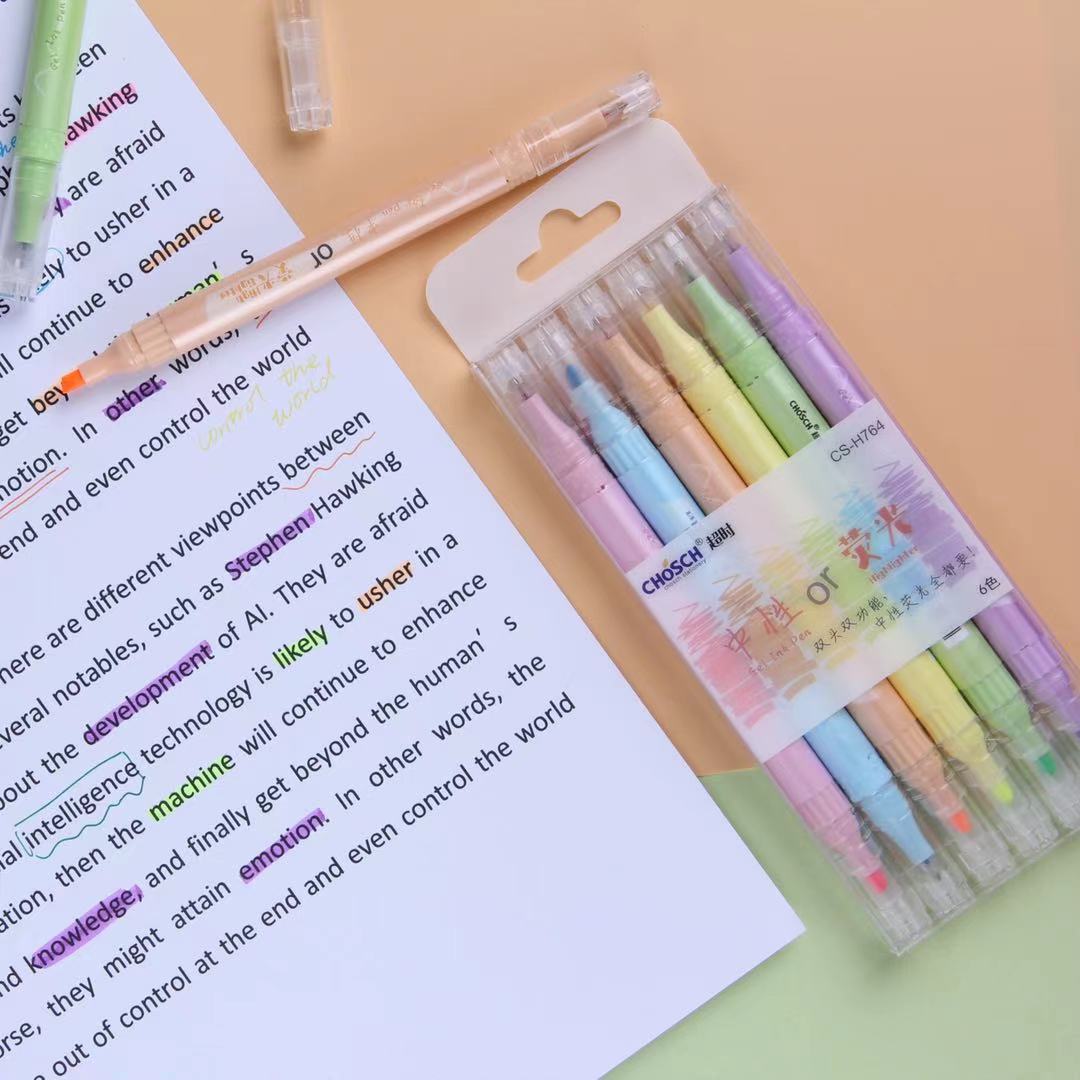 een
awking
are afraid
ely to usher in a
ll continue to enhance
human's
get bey
other words,
motion. In
end and even control the world
control the
world
here are different viewpoints between
everal notables, such as Stephen Hawking
bout the development of AI. They are afraid
ial intelligence technology is likely to usher in a
ation, then the machine will continue to enhance
nd knowledge, and finally get beyond the human's
orse, they might attain emotion. In other words, the
e out of control at the end and even control the world
or
CHOSCH
CS-H764
CHOSCH® 超时
chosch stationery
中性 or 荧光
Gel-Ink Pen
Highlighter
双头双功能,
中性荧光全都要!
6色